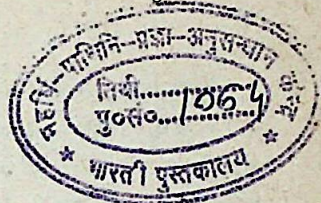 महर्षि-पाणिनि-प्रज्ञा-अनुसन्धान केन्द्र
तिथी..............
पु०सं०....1064
* भारती पुस्तकालय *